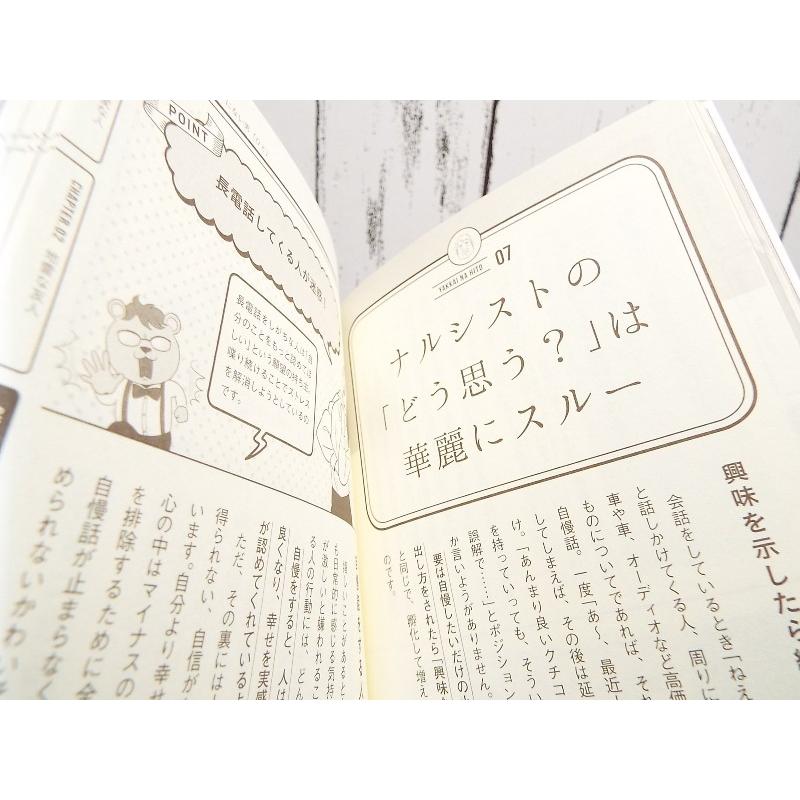 07
YAKKAI NA HITO
ナルシストの
「どう思う?」は
華麗にスルー
興味を示したら
会話をしているとき「ねえ
と話しかけてくる人、周りに
車や車、オーディオなど高価
ものについてであれば、それ
自慢話。一度「あ〜、最近
してしまえば、その後は延
け。「あんまり良いクチコ
を持っていっても、そうい
誤解で……」とポジション
か言いようがありません。
要は自慢したいだけの
出し方をされたら「興味
と同じで、孵化して増え
のです。
POINT
長電話してくる人が迷惑!
長電話をしがちな人は「自
分のことをもっと認めてほ
しい」という願望の持ち主。
喋り続けることでストレス
を解消しようとしているの
です。
CHAPTER 02
嬉しいことがあると
も日常的に感じる気持
が激しいと嫌われるこ
る人の行動には、どん
自慢をすると、人は
良くなり、幸せを実感
が認めてくれているよ
ただ、その裏にはし
得られない、自信が
います。自分より幸せ
心の中はマイナスの
を排除するために全
自慢話が止まらなく
められないかわいそ